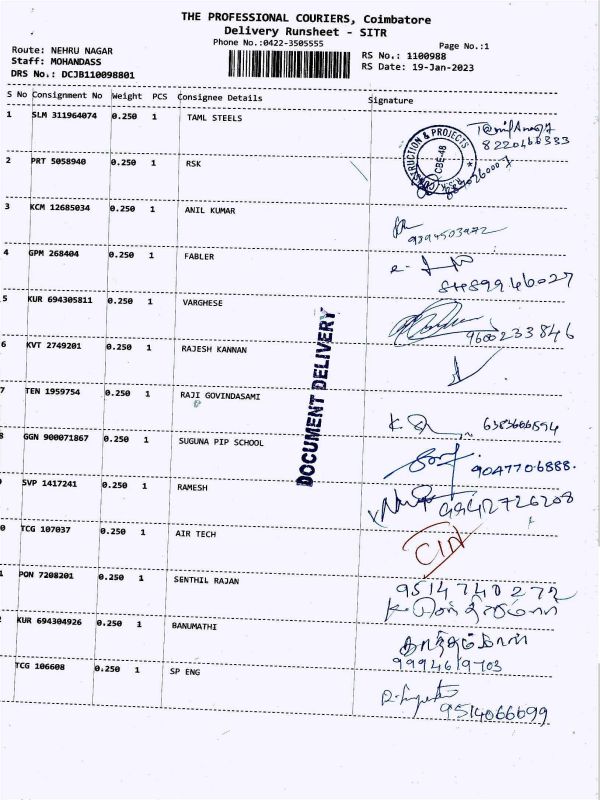 THE PROFESSIONAL COURIERS, Coimbatore
Delivery Runsheet - SITR
Phone No.:0422-3505555
Page No.:1
Route: NEHRU NAGAR
Staff: MOHANDASS
DRS No.: DCJB110098801
RS No.: 1100988
RS Date: 19-Jan-2023
S No Consignment No Weight PCS Consignee Details Signature
1 SLM 311964074 0.250 1 TAML STEELS
8220466333
CONSTRUCTION & PROJECTS
CBE-48
R.S.K
2 PRT 5058940 0.250 1 RSK
3 KCM 12685034 0.250 1 ANIL KUMAR
9394503972
4 GPM 268404 0.250 1 FABLER
5 KUR 694305811 0.250 1 VARGHESE
9600233846
6 KVT 2749201 0.250 1 RAJESH KANNAN
7 TEN 1959754 0.250 1 RAJI GOVINDASAMI
8 GGN 900071867 0.250 1 SUGUNA PIP SCHOOL
9047706888.
SVP 1417241 0.250 1 RAMESH
9842726208
0 TCG 107037 0.250 1 AIR TECH
1 PON 7208201 0.250 1 SENTHIL RAJAN
9514740272
KUR 694304926 0.250 1 BANUMATHI
9994619703
TCG 106608 0.250 1 SP ENG
9514066699
DOCUMENT DELIVERY